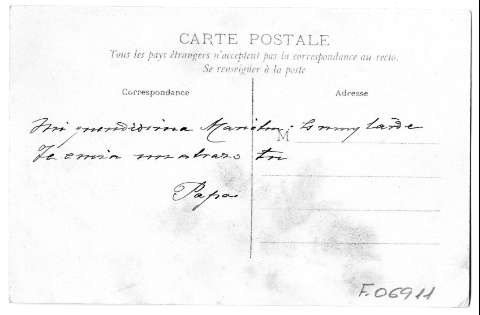 CARTE POSTALE
Tous les pays étrangers n'acceptent pas la correspondance au recto.
Se renseigner à la poste
Correspondance
Adresse
Mi queridisima : Es muy tarde
M
Te envia un abrazo tu
Papa
F.06911